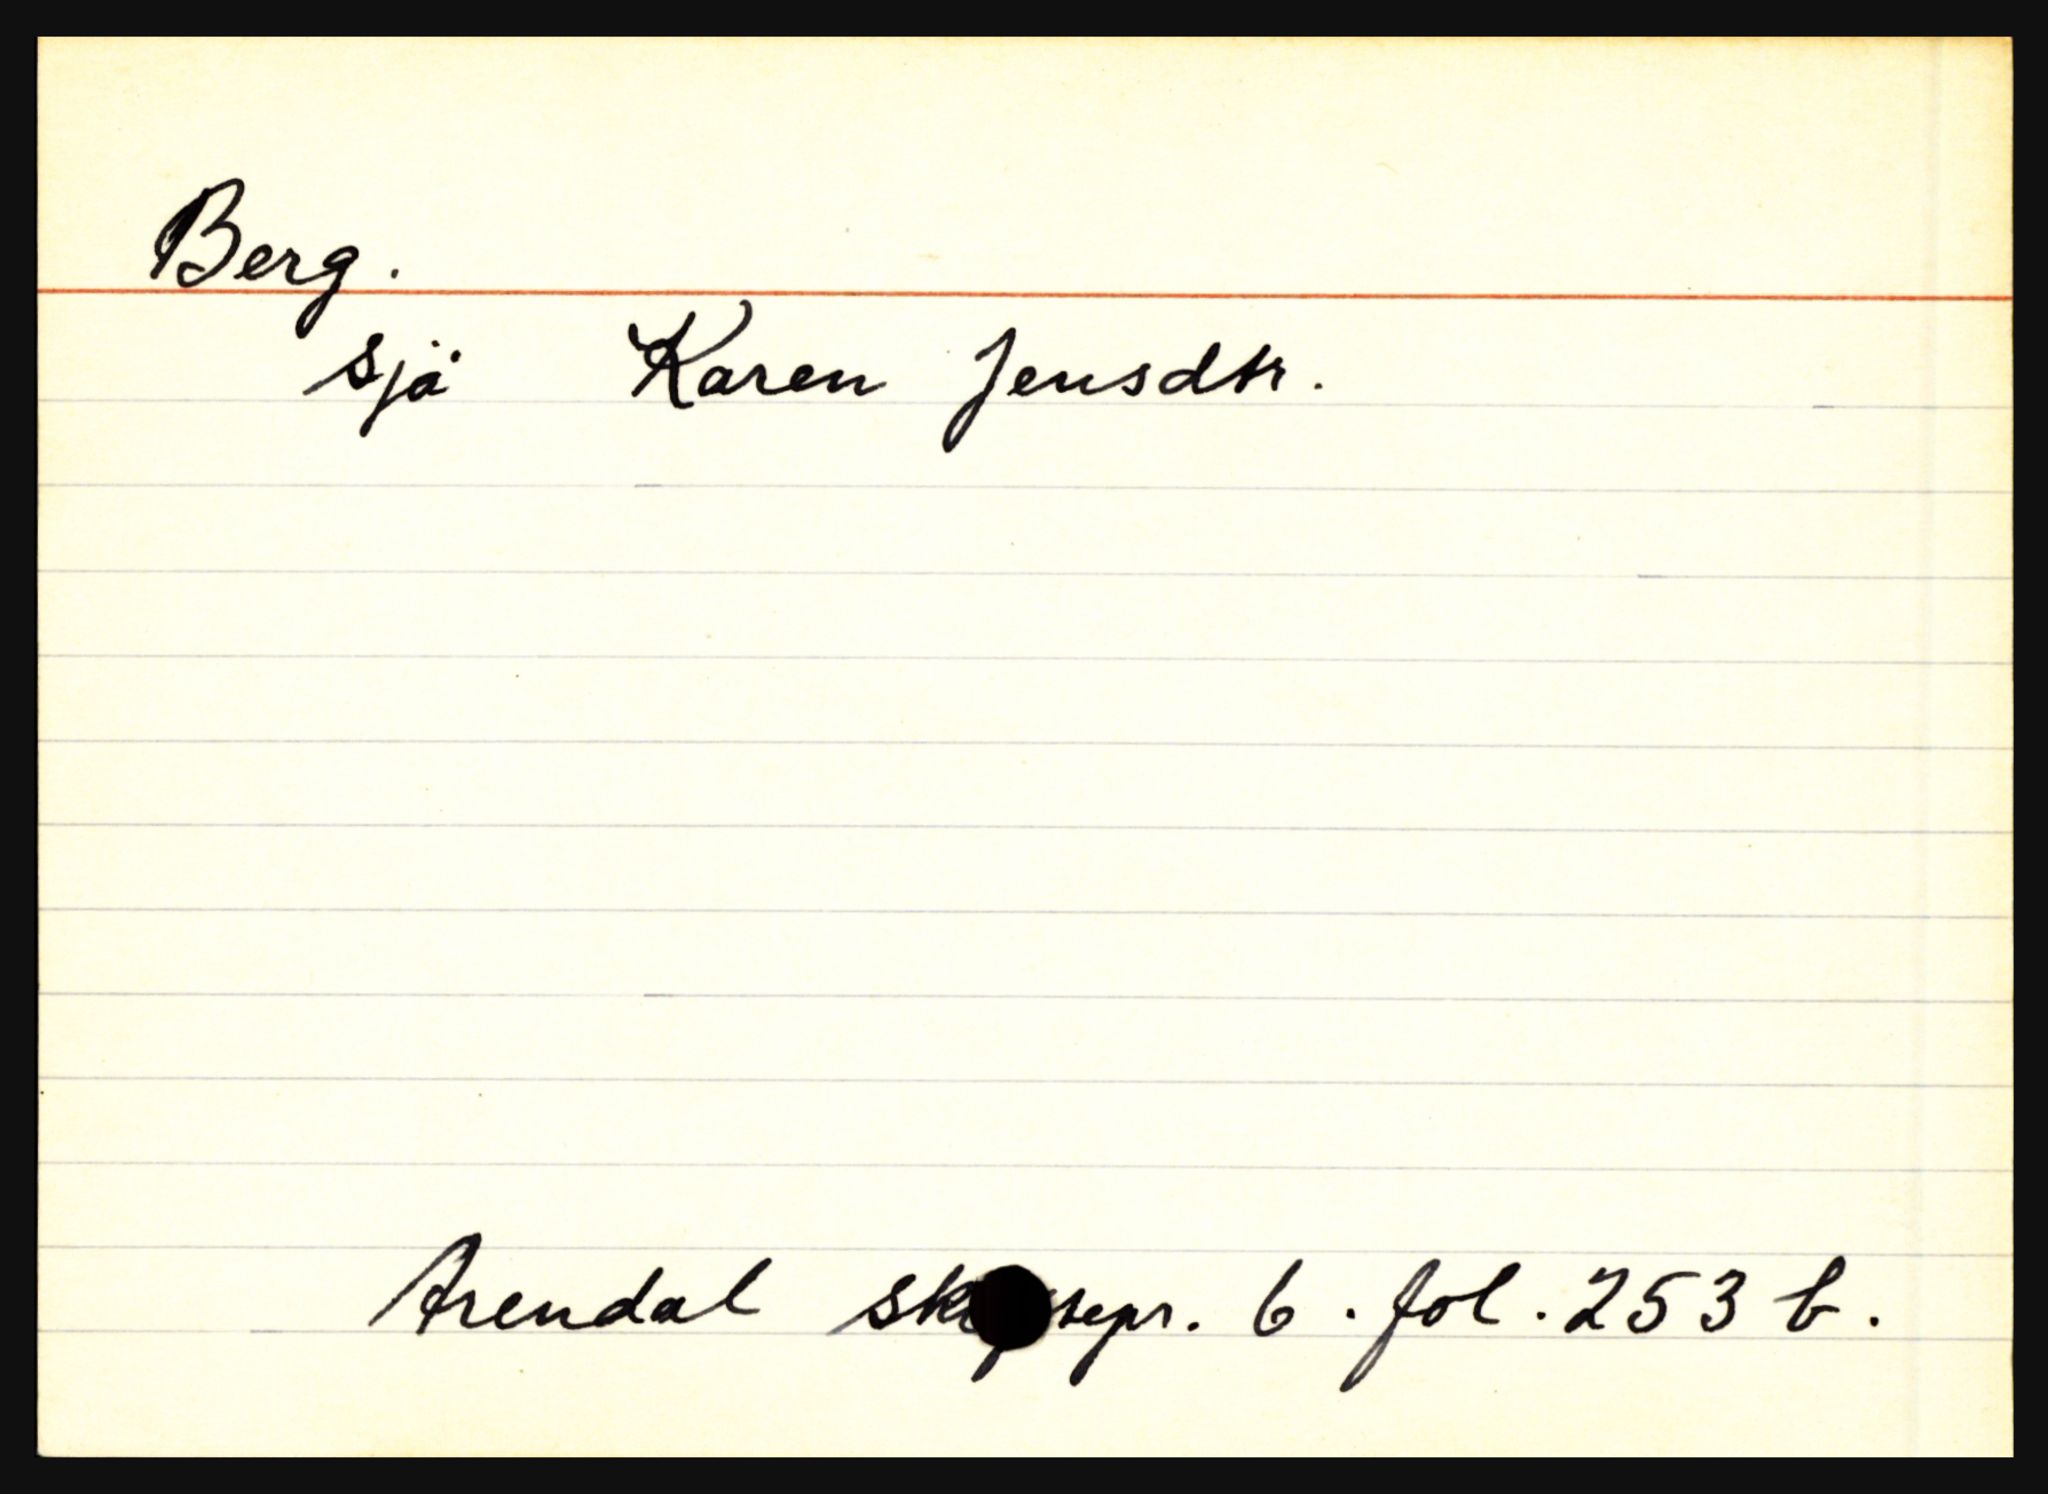 Berg.
sjå Karen Jensdtr.
Arendal 6. fol. 253 b.